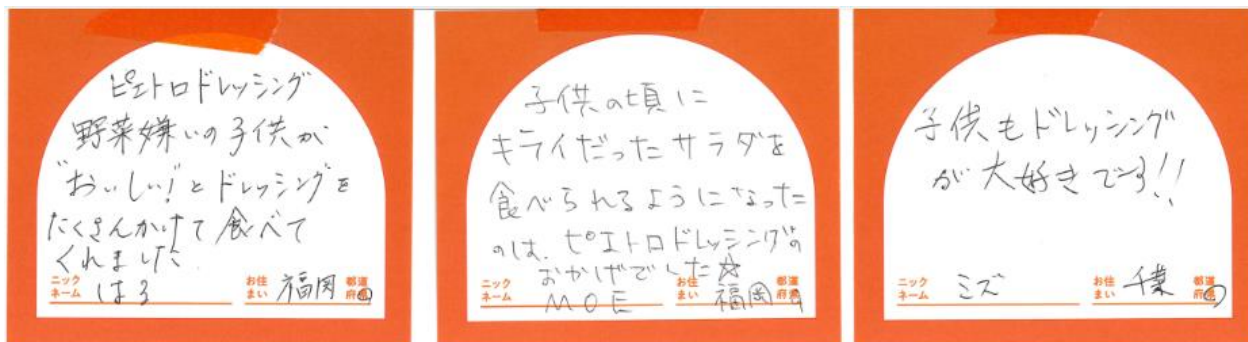 ピエトロドレッシング
野菜嫌いの子供が
"おいしい!"とドレッシングを
たくさんかけて食べて
くれました
ニックネーム はる お住まい 福岡 都道府県
子供の頃に
キライだったサラダを
食べられるようになった
のは、ピエトロドレッシングの
おかげでした☆
ニックネーム MOE お住まい 福岡 都道府県
子供もドレッシング
が大好きです!!
ニックネーム ミズ お住まい 千葉 都道府県